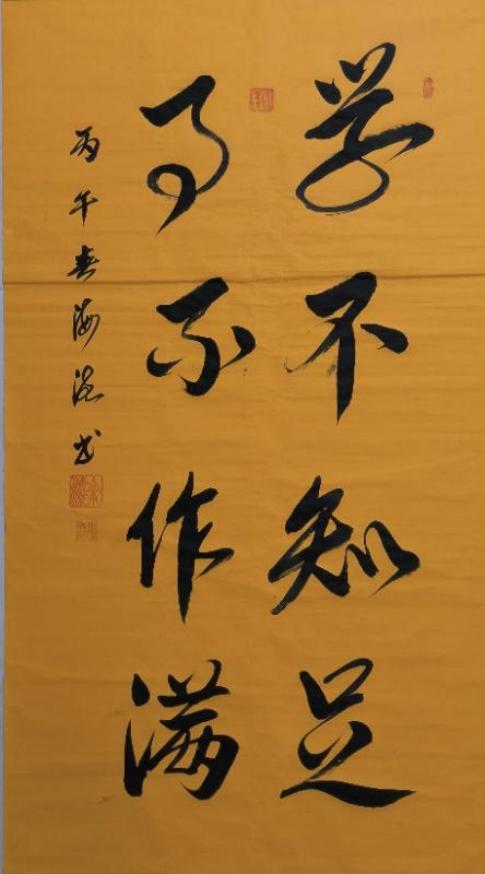 学不知足
事不作满
丙午春海滨书